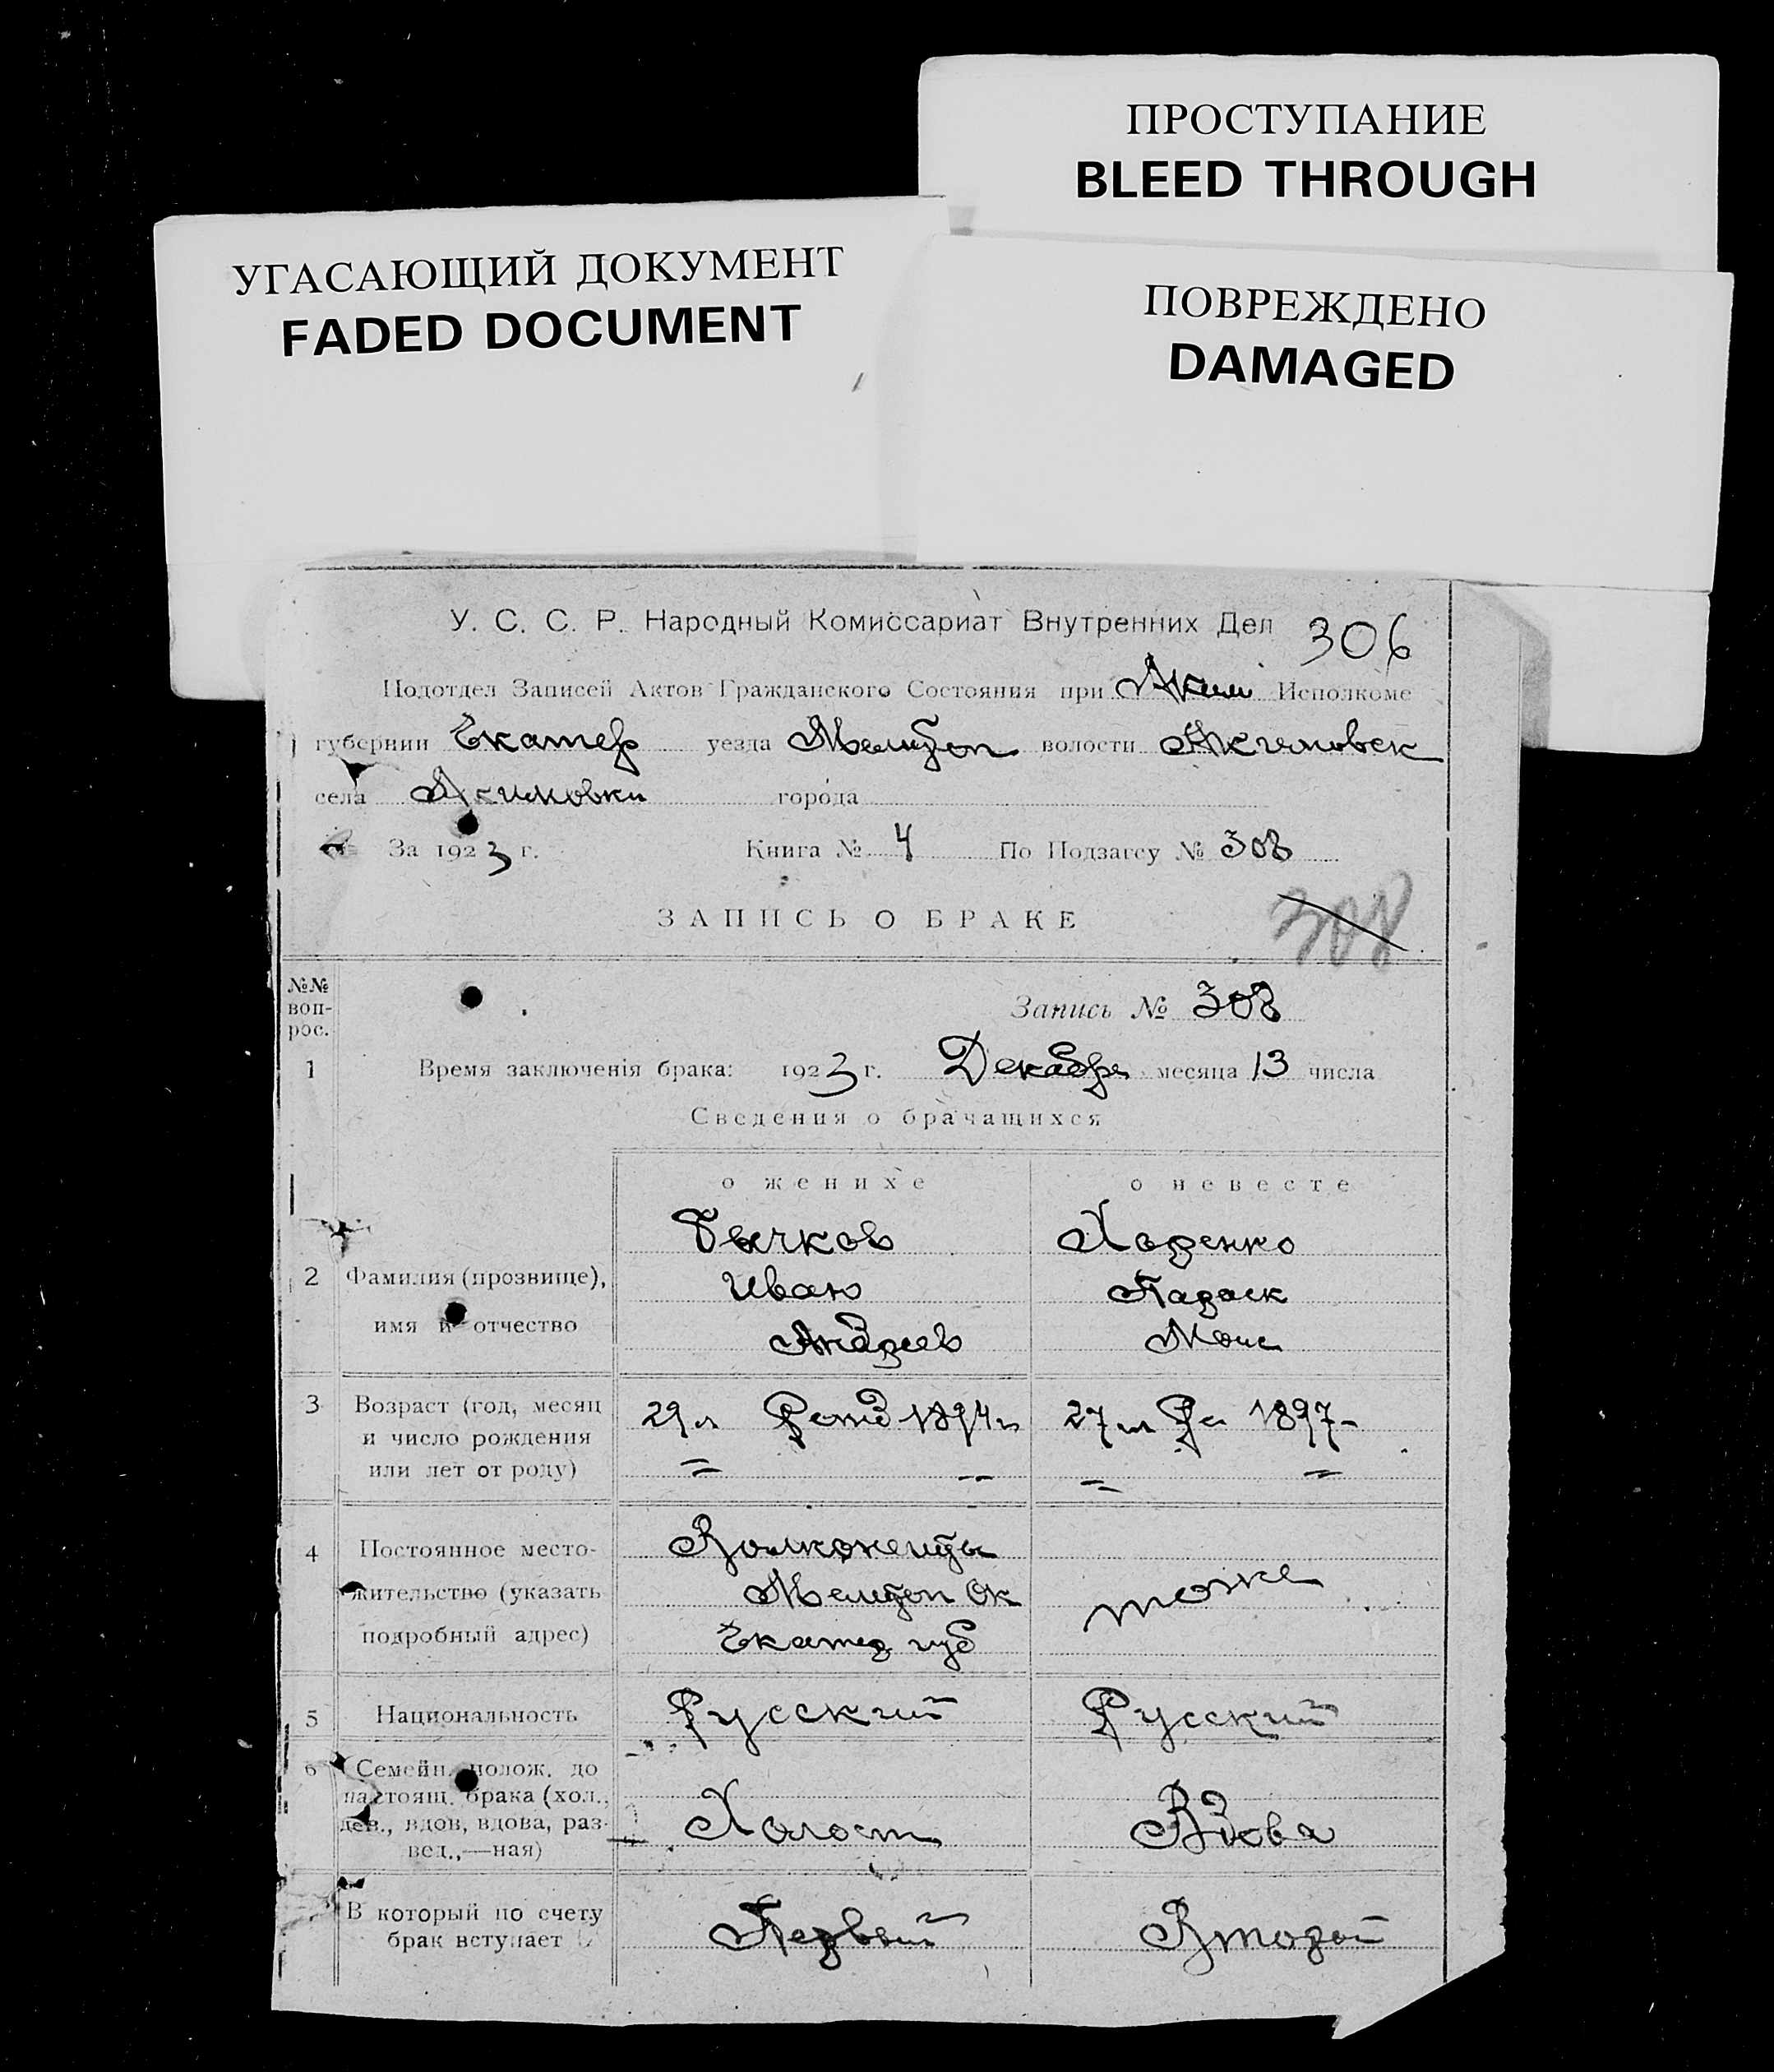 ПРОСТУПАНИЕ
BLEED THROUGH
УГАСАЮЩИЙ ДОКУМЕНТ
FADED DOCUMENT
ПОВРЕЖДЕНО
DAMAGED
У. С. С. Р. Народный Комиссариат Внутренних Дел 306
Подотдел Записей Актов Гражданского Состояния при Аким Исполкоме
губернии Екатер уезда Мелитоп волости Акимовск
села Акимовки города
За 1923 г. Книга № 4 По Подзагсу № 308
ЗАПИСЬ О БРАКЕ
308
№№ вопрос.
Запись № 308
1 Время заключенія брака: 1923 г. Декабря месяца 13 числа
Сведения о брачащихся
о женихе о невесте
Бычков Харенко
2 Фамилия (прозвище), Иван Параск
имя и отчество Андреев Моис
3 Возраст (год, месяц 29 л Рожд 1894 г 27 л Ро 1897
и число рождения
или лет от роду)
4 Постоянное место-
жительство (указать Мелитоп Ок тоже
подробный адрес) Екатер губ
5 Национальность Русский Русский
6 Семейн. полож. до
настоящ. брака (хол.,
дев., вдов, вдова, раз- Холост Вдова
вед.,—ная)
В который по счету
брак вступает Первый Второй